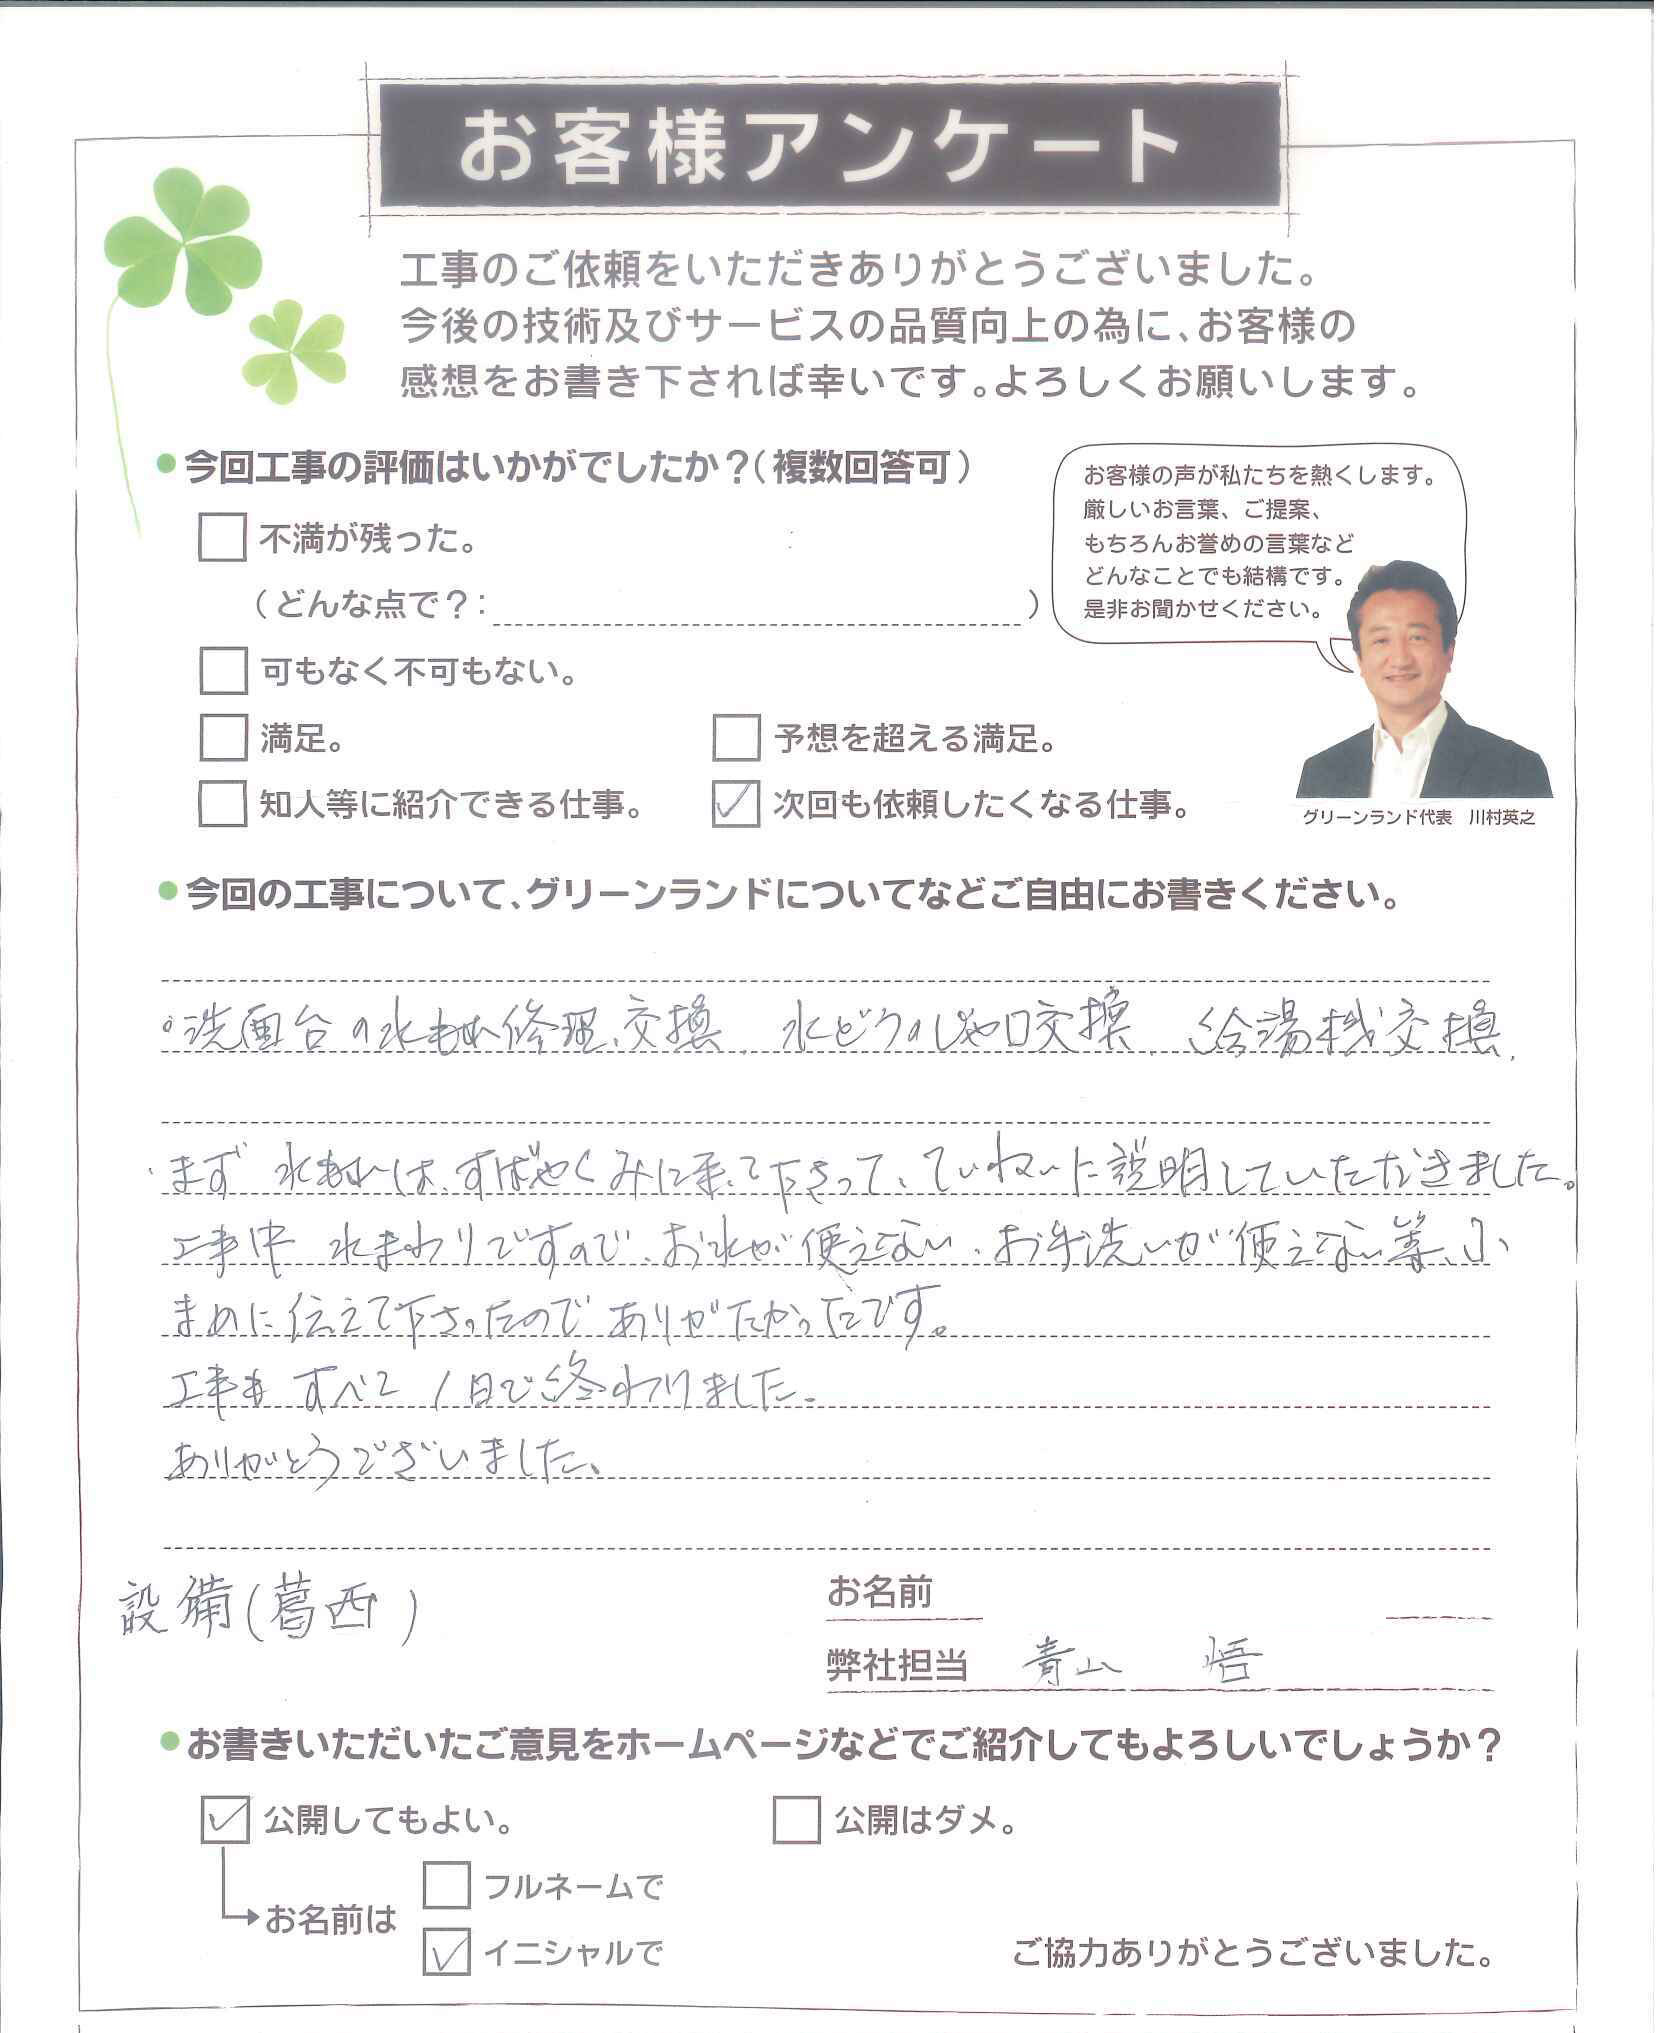 お客様アンケート
工事のご依頼をいただきありがとうございました。
今後の技術及びサービスの品質向上の為に、お客様の
感想をお書き下されば幸いです。よろしくお願いします。
●今回工事の評価はいかがでしたか？（複数回答可）
不満が残った。
（どんな点で？：　）
可もなく不可もない。
満足。
予想を超える満足。
知人等に紹介できる仕事。
次回も依頼したくなる仕事。
お客様の声が私たちを熱くします。
厳しいお言葉、ご提案、
もちろんお誉めの言葉など
どんなことでも結構です。
是非お聞かせください。
グリーンランド代表　川村英之
●今回の工事について、グリーンランドについてなどご自由にお書きください。
○洗面台の水もれ修理、交換、水どうのじゃ口交換、給湯機交換、
・まず 水もれは、すばやくみに来て下さって、ていねいに説明していただきました。
工事中 水まわりですので、お水が使えない、お手洗いが使えない等、小
まめに伝えて下さったのでありがたかったです。
工事も すべて 1日で終わりました。
ありがとうございました。
設備(葛西)
お名前
弊社担当　青山　悟
●お書きいただいたご意見をホームページなどでご紹介してもよろしいでしょうか？
公開してもよい。
公開はダメ。
お名前は
フルネームで
イニシャルで
ご協力ありがとうございました。